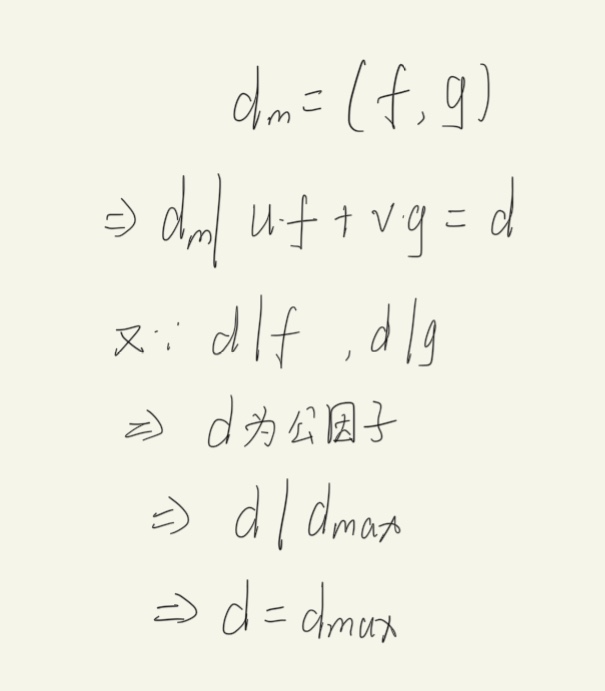 dₘ = (f, g)
⇒ dₘ | u·f + v·g = d
又∵ d | f , d | g
⇒ d为公因子
⇒ d | dmax
⇒ d = dmax